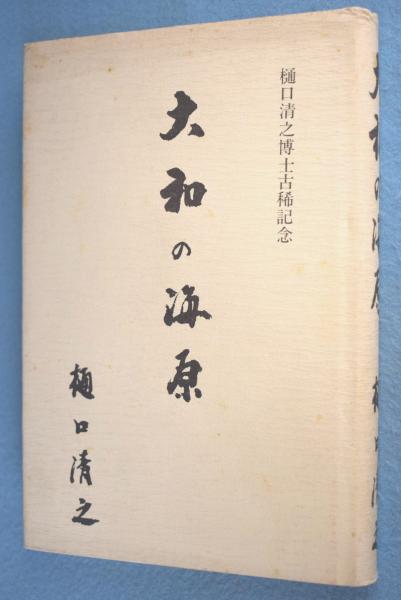 樋口清之博士古稀記念
大和の海原
樋口清之
大和の海原 樋口清之